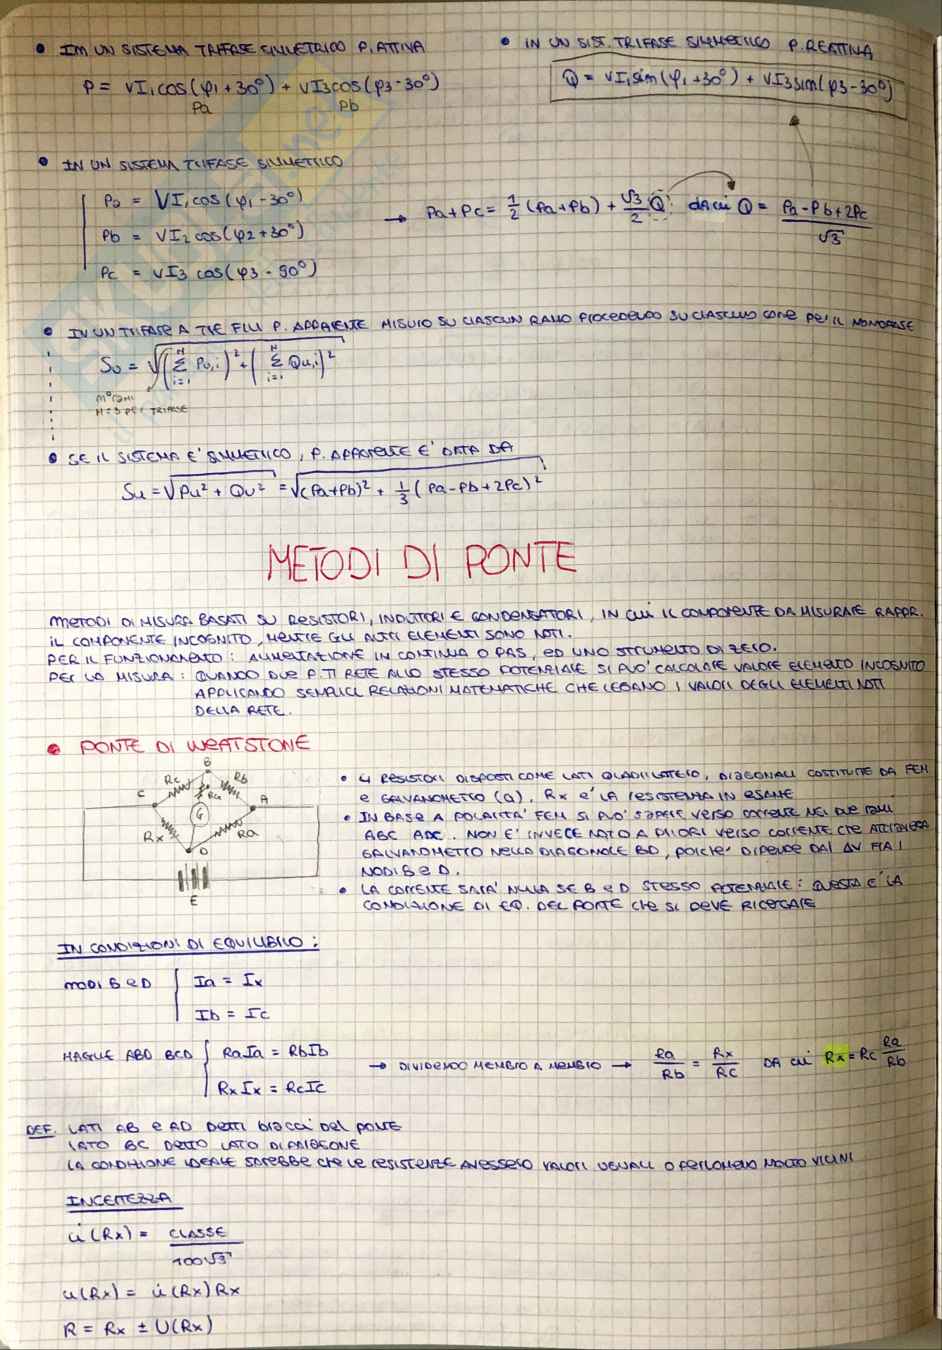 • IN UN SISTEMA TRIFASE SIMMETRICO P. ATTIVA
P = VI₁cos(φ1+30°) + VI3cos(φ3-30°)
Pa Pb
• IN UN SIST. TRIFASE SIMMETRICO P. REATTIVA
Q = VI₁sin(φ1+30°) + VI3sin(φ3-30°)
• IN UN SISTEMA TRIFASE SIMMETRICO
Pa = VI₁cos(φ1-30°)
Pb = VI2cos(φ2+30°)
Pc = VI3 cos(φ3-90°)
→ Pa+Pc = 1/2 (Pa+Pb) + √3/2 Q da cui Q = (Pa-Pb+2Pc)/√3
• IN UN TRIFASE A TRE FILI P. APPARENTE MISURO SU CIASCUN RAMO PROCEDENDO SU CIASCUNO COME PER IL MONOFASE
Su = √((Σ_{i=1}^{N} Pu,i)² + (Σ_{i=1}^{N} Qu,i)²)
N° RAMI
N = 3 PER TRIFASE
• SE IL SISTEMA E' SIMMETRICO, P. APPARENTE E' DATA DA
Su = √(Pu² + Qu²) = √((Pa+Pb)² + 1/3 (Pa-Pb+2Pc)²)
METODI DI PONTE
METODI DI MISURA BASATI SU RESISTORI, INDUTTORI E CONDENSATORI, IN CUI IL COMPONENTE DA MISURARE RAPPR.
IL COMPONENTE INCOGNITO, MENTRE GLI ALTRI ELEMENTI SONO NOTI.
PER IL FUNZIONAMENTO: ALIMENTAZIONE IN CONTINUA O PAS, ED UNO STRUMENTO DI ZERO.
PER LA MISURA: QUANDO DUE P.TI RETE ALLO STESSO POTENZIALE SI PUO' CALCOLARE VALORE ELEMENTO INCOGNITO
APPLICANDO SEMPLICI RELAZIONI MATEMATICHE CHE LEGANO I VALORI DEGLI ELEMENTI NOTI
DELLA RETE.
• PONTE DI WEATSTONE
B
Rc Rb
C A
G
Rx Ra
D
E
• 4 RESISTORI DISPOSTI COME LATI QUADRILATERO, DIAGONALI COSTITUITE DA FEM
E GALVANOMETRO (G). Rx E' LA RESISTENZA IN ESAME
• IN BASE A POLARITA' FEM SI PUO' SAPERE VERSO CORRENTE NEI DUE RAMI
ABC ADC. NON E' INVECE NOTO A PRIORI VERSO CORRENTE CHE ATTRAVERSA
GALVANOMETRO NELLA DIAGONALE BD, POICHE' DIPENDE DAL ΔV FRA I
NODI B e D.
• LA CORRENTE SARA' NULLA SE B e D STESSO POTENZIALE: QUESTA E' LA
CONDIZIONE DI EQ. DEL PONTE CHE SI DEVE RICERCARE
IN CONDIZIONI DI EQUILIBRIO:
NODI B e D { Ia = Ix
Ib = Ic
MAGLIE ABD BCD { RaIa = RbIb
RxIx = RcIc
→ DIVIDENDO MEMBRO A MEMBRO → Ra/Rb = Rx/Rc DA CUI Rx = Rc Ra/Rb
DEF. LATI AB e AD DETTI BRACCI DEL PONTE
LATO BC DETTO LATO DI PARAGONE
LA CONDIZIONE IDEALE SAREBBE CHE LE RESISTENZE AVESSERO VALORI UGUALI O PERLOMENO MOLTO VICINI
INCERTEZZA
u̇(Rx) = CLASSE/100√3
u(Rx) = u̇(Rx) Rx
R = Rx ± U(Rx)